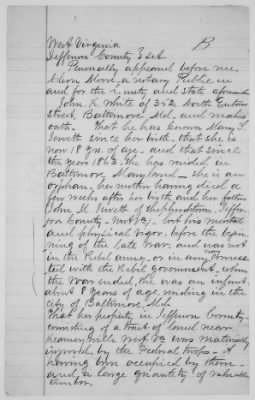 West Virginia B
Jefferson County 3 set
Personally appeared before me,
Cleon Moore, a notary Public in
and for the County and State aforesaid
John K. White of 352 North Eutaw
Street, Baltimore, Md. and makes
oath. That he has known Mary L.
Lovett since her birth, that she is
now 18 yrs. of age, and that since
the year 1863 she has resided in
Baltimore Maryland - she is an
orphan, her mother having died a
few weeks after her birth and her father
John M. Lovett of Shepherdstown. Jeffer-
son County. West Va. lost his mental
and physical vigor, before the begin-
ning of the late War. and was not
in the Rebel army, or in any connec-
ted with the Rebel Government, when
the War ended, she was an infant,
about 8 years of age residing in the
city of Baltimore, Md.
That her property in Jefferson County,
consisting of a tract of land near
Kearneysville West Va was materially
injured, by the Federal troops - it
having been occupied by them -
and, a large quantity of valuable
timber.